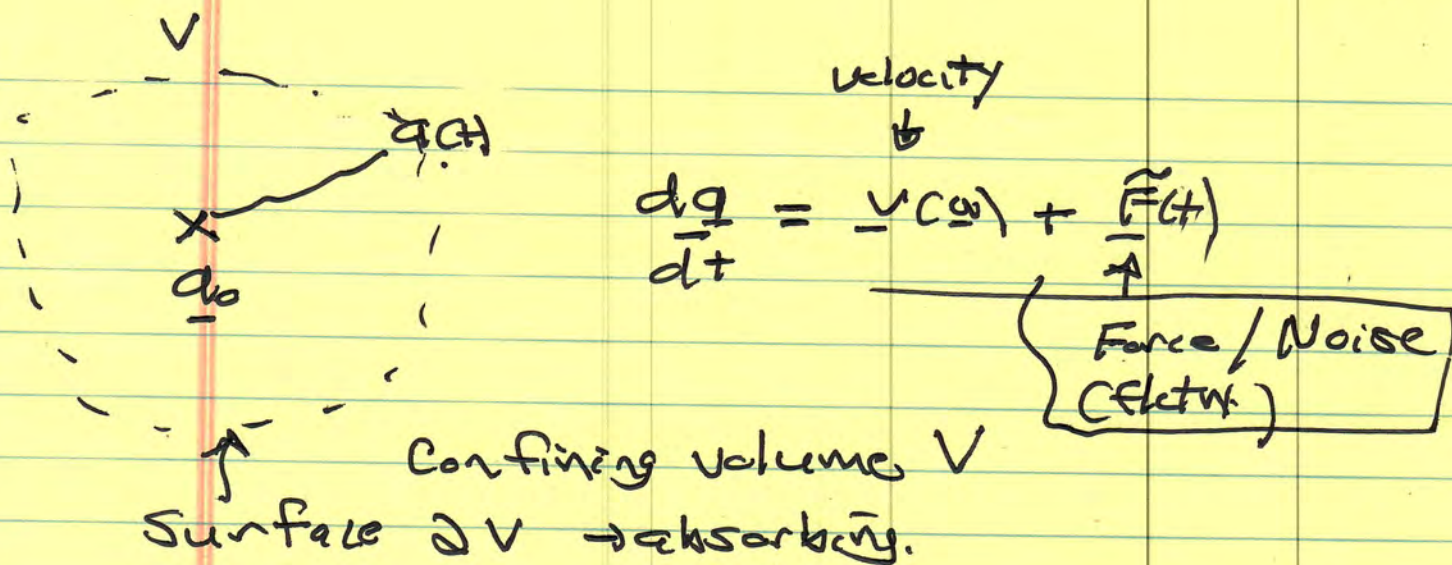 V
q(t)
velocity
↓
dq/dt = v(q) + F̃(t)
x
q₀
Force / Noise
(flctn.)
Confining volume V
Surface ∂V → absorbing.